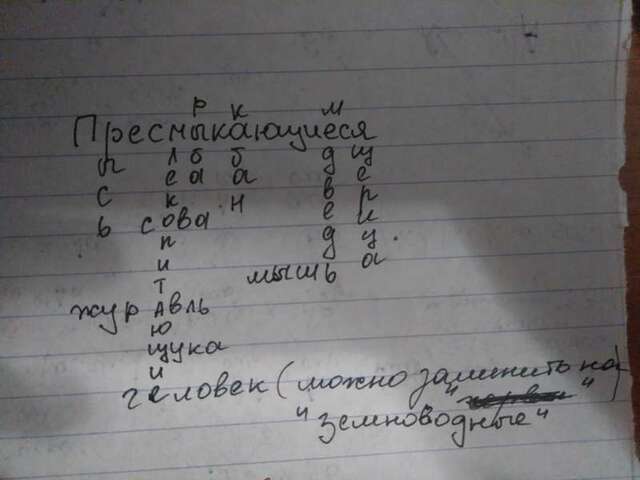 р к м
Пресмыкающиеся
ы л б б д щ
е а а в е
с к н е р
ь сова и
п д ц
и мышь а
т
жур авль
ю
щука
и
человек (можно заминить на)
"земноводные"